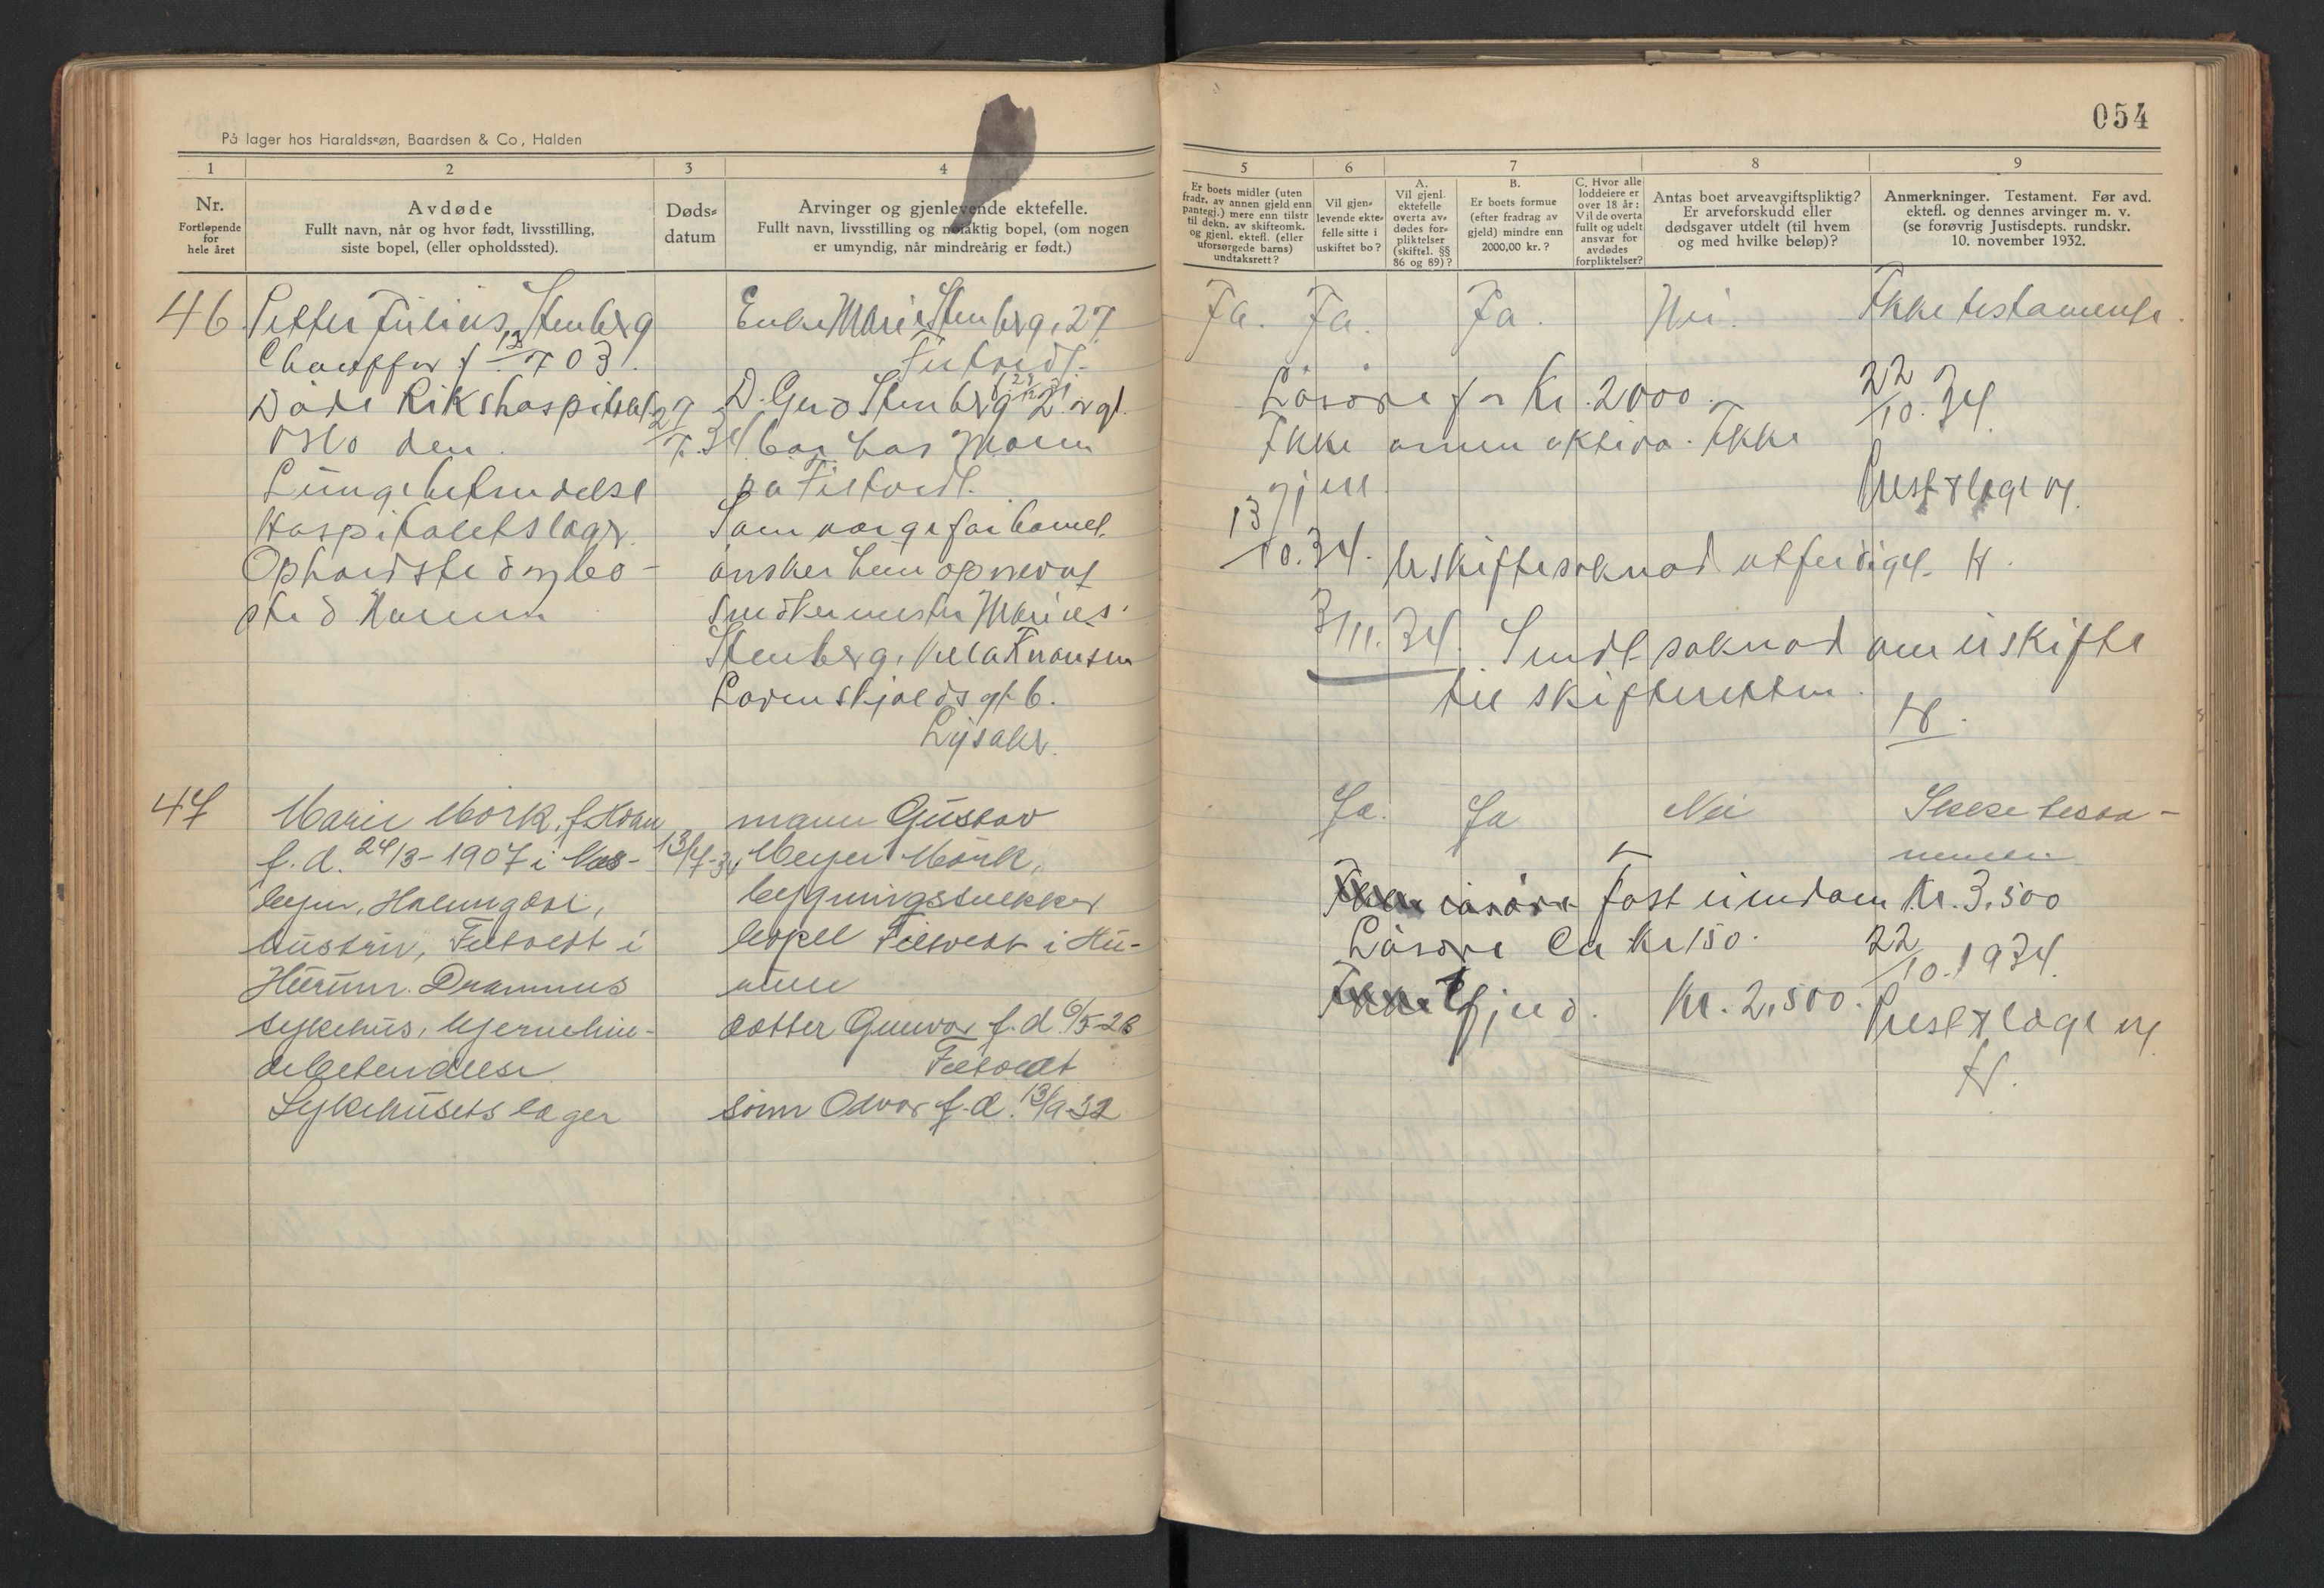 På lager hos Haraldssøn, Baardsen & Co, Halden
1
2
3
4
Nr.
Fortløpende
for
hele året
Avdøde
Fullt navn, når og hvor født, livsstilling,
siste bopel, (eller opholdssted).
Døds-
datum
Arvinger og gjenlevende ektefelle.
Fullt navn, livsstilling og nøiaktig bopel, (om nogen
er umyndig, når mindreårig er født.)
46
Petter Julius Stenberg
Chauffør f 12/7 03.
Døde Rikshospitalet
Oslo den
Lungebetendelse
Hospitalets læge
Opholdsted og bo-
sted Hurum
27/7.34
Enke Marie Stenberg, 27
Filtvedt.
D. Gerd Stenberg 2 årgl.
bor hos Moren
på Filtvedt.
Som værge for barnet
ønsker hun opnevnt
Snedkermester Marius
Stenberg, Villa Knausen
Lovenskjoldsgt 6.
Lysaker.
47
Marie Mörk, f.
f. d. 24/3-1907 i Nes-
byen, Hallingdal,
hustru, Filtvedt i
Hurum. Drammens
sykehus, hjernehin-
debetendelse
Sykehusets læger
13/7-34
mann Gustav
Meyer Mörk,
bygningssnekker
bopel Filtvedt i Hu-
rum
datter Gunvor f. d. 6/5-28
Filtvedt
sönn Odvar f. d. 13/9-32
054
5
6
7
8
9
Er boets midler (uten
fradr. av annen gjeld enn
pantegj.) mere enn tilstr
til dekn. av skifteomk.
og gjenl. ektefl. (eller
uforsørgede barns)
undtaksrett?
Vil gjen-
levende ekte-
felle sitte i
uskiftet bo?
A.
Vil gjenl.
ektefelle
overta av-
dødes for-
pliktelser
(skiftel. §§
86 og 89)?
B.
Er boets formue
(efter fradrag av
gjeld) mindre enn
2000,00 kr.?
C. Hvor alle
loddeiere er
over 18 år:
Vil de overta
fullt og udelt
ansvar for
avdødes
forpliktelser?
Antas boet arveavgiftspliktig?
Er arveforskudd eller
dødsgaver utdelt (til hvem
og med hvilke beløp)?
Anmerkninger. Testament. Før avd.
ektefl. og dennes arvinger m. v.
(se forøvrig Justisdepts. rundskr.
10. november 1932.
Ja. Ja. Ja. Nei. Ikke testamente.
Løsøre for Kr. 2000.
22/10.34
Ikke annen aktiva. Ikke
gjell.
Prest & læge
13/10.34. Uskiftesøknad utferdiget. H.
3/11.34. Sendt søknad om uskifte
til skifteretten.
H.
Ja. Ja Nei Ikke testa-
mente
fast eiendom Kr. 3.500
Løsøre Ca Kr 150.
22/10.1934.
Gjeld. Kr. 2.500.
Prest & læge
H.